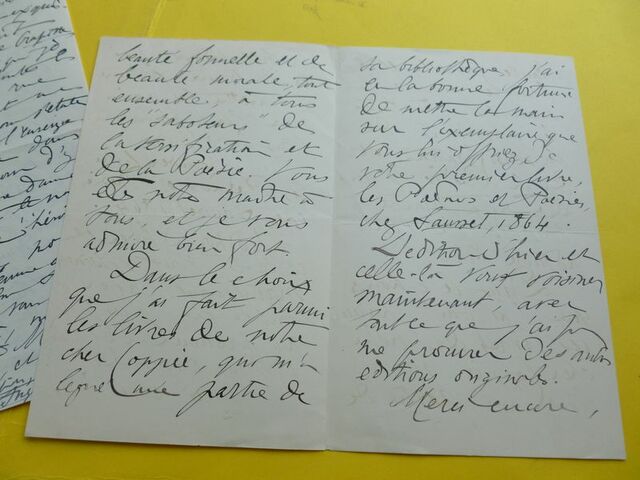 beauté formelle et de
beauté morale, tout
ensemble, à tous
les "saboteurs" de
la versification et
de la Poësie. Vous
êtes notre maître à
tous, et je vous
admire bien fort.
Dans le choix
que j'ai fait parmi
les livres de notre
cher Coppée, qui m'a
légué une partie de
sa bibliothèque, j'ai
eu la bonne fortune
de mettre la main
sur l'exemplaire que
vous lui offriez
votre premier livre,
les Poèmes et Poésies,
chez Sausset, 1864.
L'édition d'hier et
celle-là vont voisiner
maintenant, avec
tout ce que j'ai pu
me procurer des autres
éditions originales.
Merci encore,